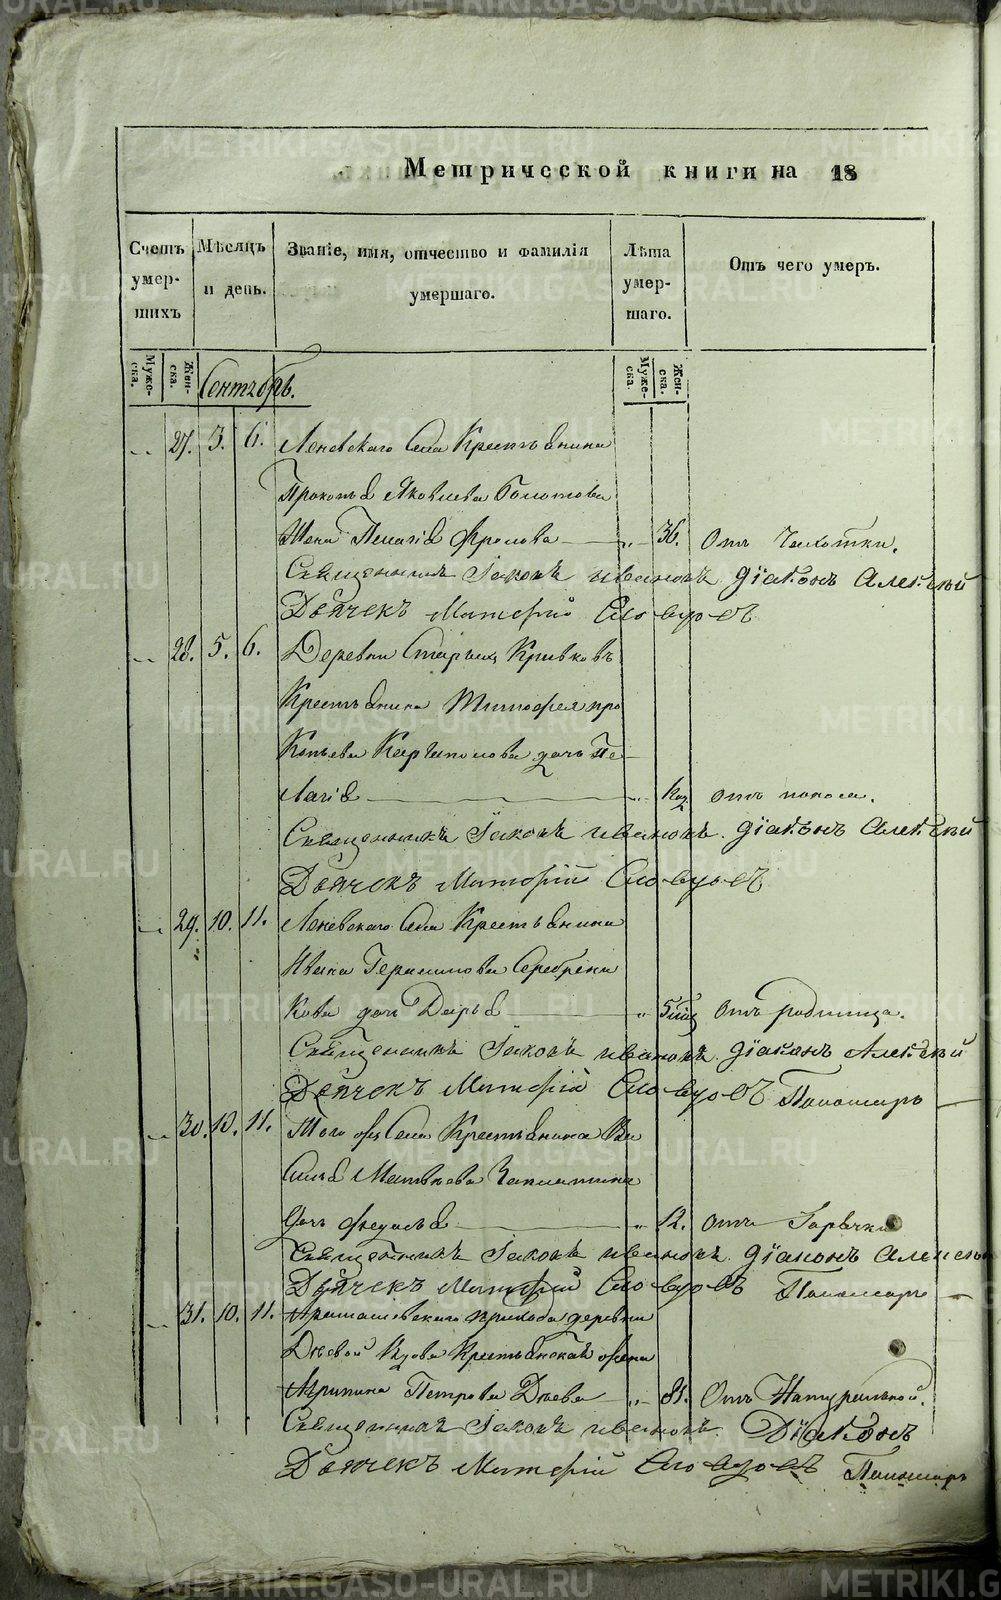 Метрической книги на 18
Счетъ умершихъ
Мѣсяцъ и день.
Званіе, имя, отчество и фамилія умершаго.
Лѣта умершаго.
Отъ чего умеръ.
Мужеска.
Женска.
Сентябрь.
Мужеска.
Женска.
27. 3. 6. Леневскаго Села Крестьянина
Прокопья Яковлева Болотова
Жена Пелагія Фролова 36. Отъ Чахотки.
Священникъ Іаковъ Ивановъ Діаконъ Алексѣй
Дьячекъ Митрофій
28. 5. 6. Деревни Старыхъ Кривковъ
Крестьянина Тимофея Про
Копьева дочь Пе
лагія Отъ поноса.
Священникъ Іаковъ Ивановъ. Діаконъ Алексѣй
Дьячекъ Митрофій
29. 10. 11. Леневскаго Села Крестьянина
Ивана Герасимова Серебрени
Кова дочь Дарья 5 Отъ родимца.
Священникъ Іаковъ Ивановъ. Діаконъ Алексѣй
Дьячекъ Митрофій Пономарь
30. 10. 11. Того же Села Крестьянина Ва
Силья Матвѣева Заплатина
Дочь Федосья 12. Отъ Горячки
Священникъ Іаковъ Ивановъ. Діаконъ Алексѣй
Дьячекъ Митрофій Пономарь
31. 10. 11. прихода деревни
Вдова Крестьянская жена
Агрипина Петрова 81. Отъ Натуральной.
Священникъ Іаковъ Ивановъ. Діаконъ
Дьячекъ Митрофій Пономарь
METRIKI.GASO-URAL.RU